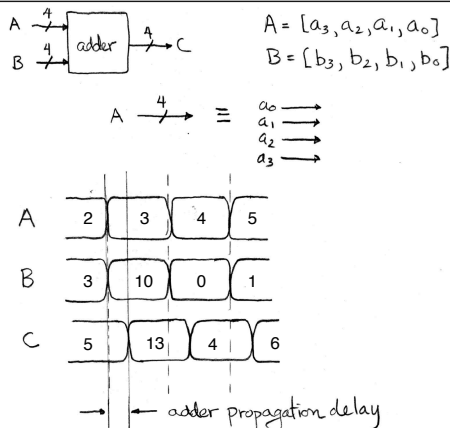 A 4 adder 4 C
B 4
A = [a3, a2, a1, a0]
B = [b3, b2, b1, b0]
A 4 ≡ a0
a1
a2
a3
A 2 3 4 5
B 3 10 0 1
C 5 13 4 6
adder propagation delay